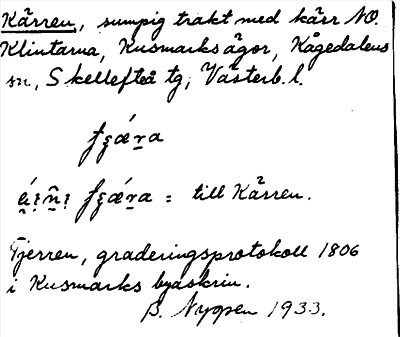 Kärren, sumpig trakt med kärr NO.
Klintarna, Kusmarks ägor, Kågedalens
sn, Skellefteå tg, Västerb. l.
= till Kärren.
Tjerren, graderingsprotokoll 1806
i Kusmarks byaskrin.
B. Nygren 1933.